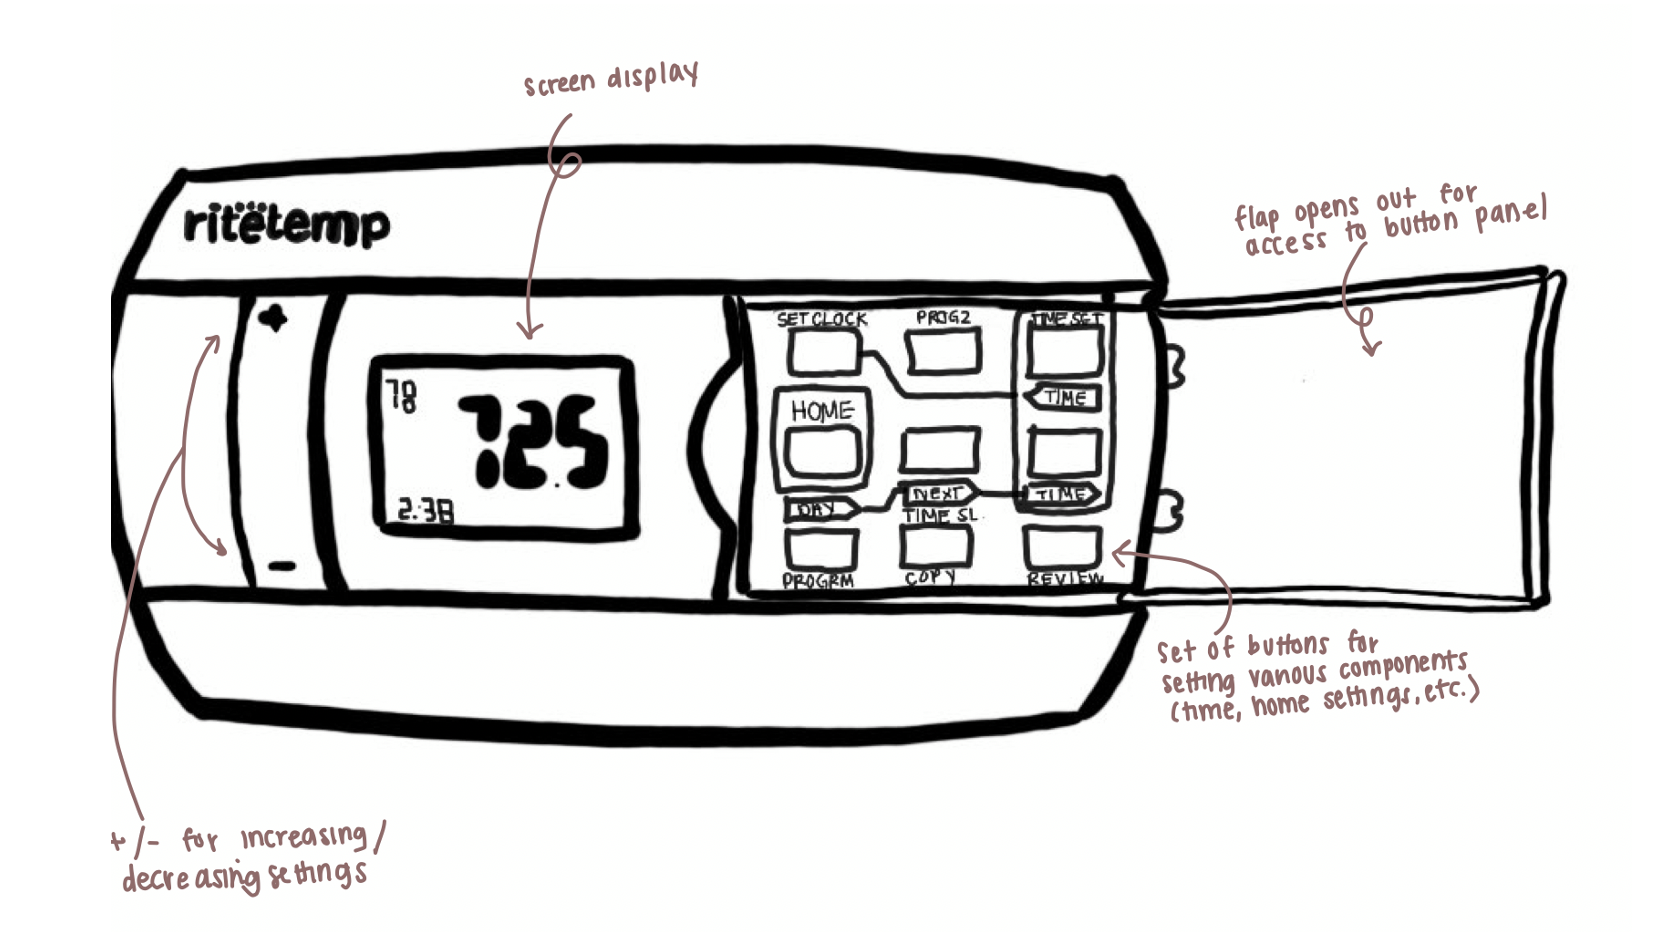 screen display
flap opens out for
access to button panel
ritetemp
+
78
72.5
2:38
-
SET CLOCK
PROG2
TIME SET
TIME
HOME
DAY
NEXT
TIME
TIME SL.
PROGRM
COPY
REVIEW
set of buttons for
setting various components
(time, home settings, etc.)
+/- for increasing/
decreasing settings